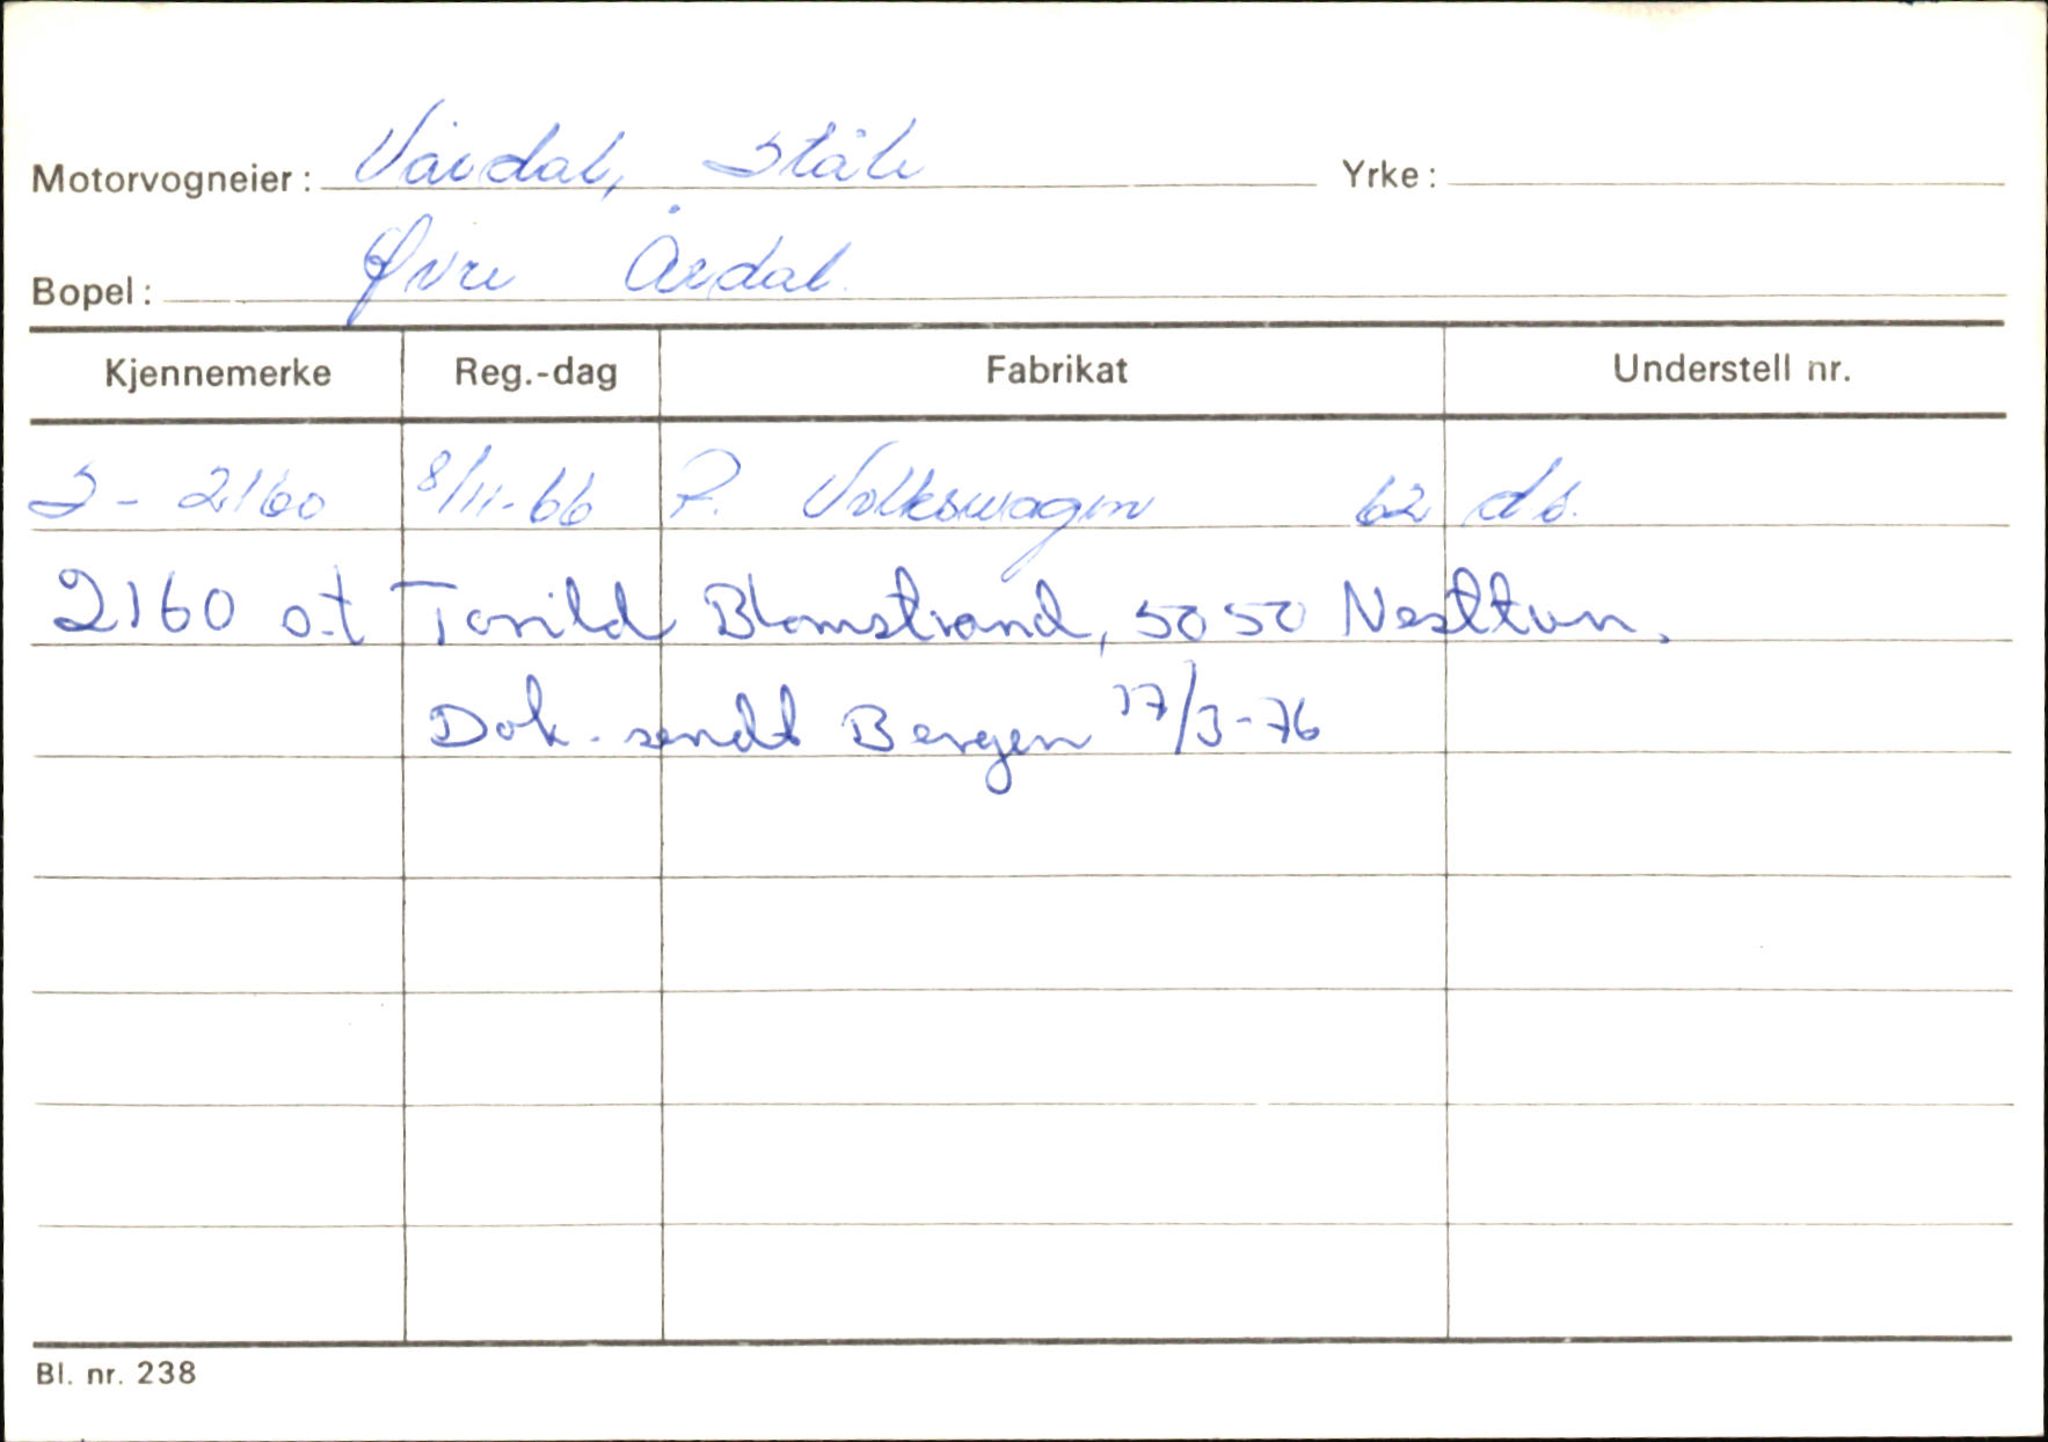 Motorvogneier: Vårdal, Ståle Yrke:
Bopel: Øvre Årdal
Kjennemerke Reg.-dag Fabrikat Understell nr.
S- 2160 8/11-66 P. Volkswagen 62 ds.
2160 o.t Torild Blomstrand, 5050 Nesttun.
Dok. sendt Bergen 17/3-76
Bl. nr. 238